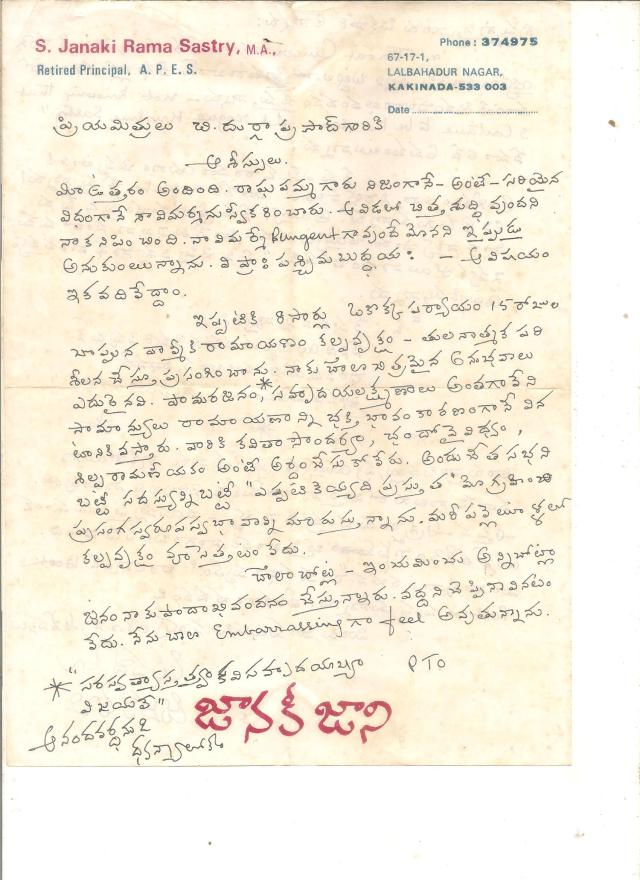 S. Janaki Rama Sastry, M.A.,
Retired Principal, A. P. E. S.
Phone : 374975
67-17-1,
LALBAHADUR NAGAR,
KAKINADA-533 003
Date
ప్రియమిత్రులు చి. దుర్గాప్రసాద్‌గారికి
—ఆశీస్సులు.
మీ ఉత్తరం అందింది. రాఘవమ్మగారు నిజంగానే – అంటే – సరియైన
విధంగానే నా విమర్శను స్వీకరించారు. ఆవిడలో చిత్తశుద్ధి వుందని
నాకనిపించింది. నా విమర్శే Pungent గా వుందేమోనని ఇప్పుడు
అనుకుంటున్నాను. విప్రాః పశ్చిమబుద్ధయః – ఆ విషయం
ఇక వదిలేద్దాం.
ఇప్పటికి 8 సార్లు ఒకొక్క పర్యాయం 15 రోజుల
చొప్పున వాల్మీకి రామాయణం కల్పవృక్షం – తులనాత్మక పరి
శీలన చేస్తూ ప్రసంగించాను. నాకు చాలా చిత్రమైన అనుభవాలు
ఎదురైనవి. పామరజనం, * సహృదయలక్షణాలు అంతగా లేని
సామాన్యులు రామాయణాన్ని భక్తి భావం కారణంగానే విన
టానికి వస్తారు. వారికి కవితా సౌందర్యం, ఛందోవైవిధ్యం,
శిల్ప రామణీయకం అంటే అర్థంచేసుకోలేరు. అందుచేత సభని
బట్టీ సదస్యున్నిబట్టీ "ఎప్పటికెయ్యది ప్రస్తుత" మో గ్రహించి
ప్రసంగ స్వరూపస్వభావాల్ని మారుస్తున్నాను. మరీ పల్లెటూళ్లలో
కల్పవృక్షం వూసెత్తటం లేదు.
చాలాచోట్ల – ఇంచుమించు అన్నిచోట్లా
జనం నాకు పాదాభివందనం చేస్తున్నారు. వద్దని చెప్పినా వినటం
లేదు. నేను చాలా Embarrassing గా feel అవుతున్నాను.
PTO
* "సరస్వత్యాస్తత్వం కవిసహృదయాఖ్యం
విజయతే"
ఆనందవర్ధనుడి
ధ్వన్యాలోకం
జానకీజాని